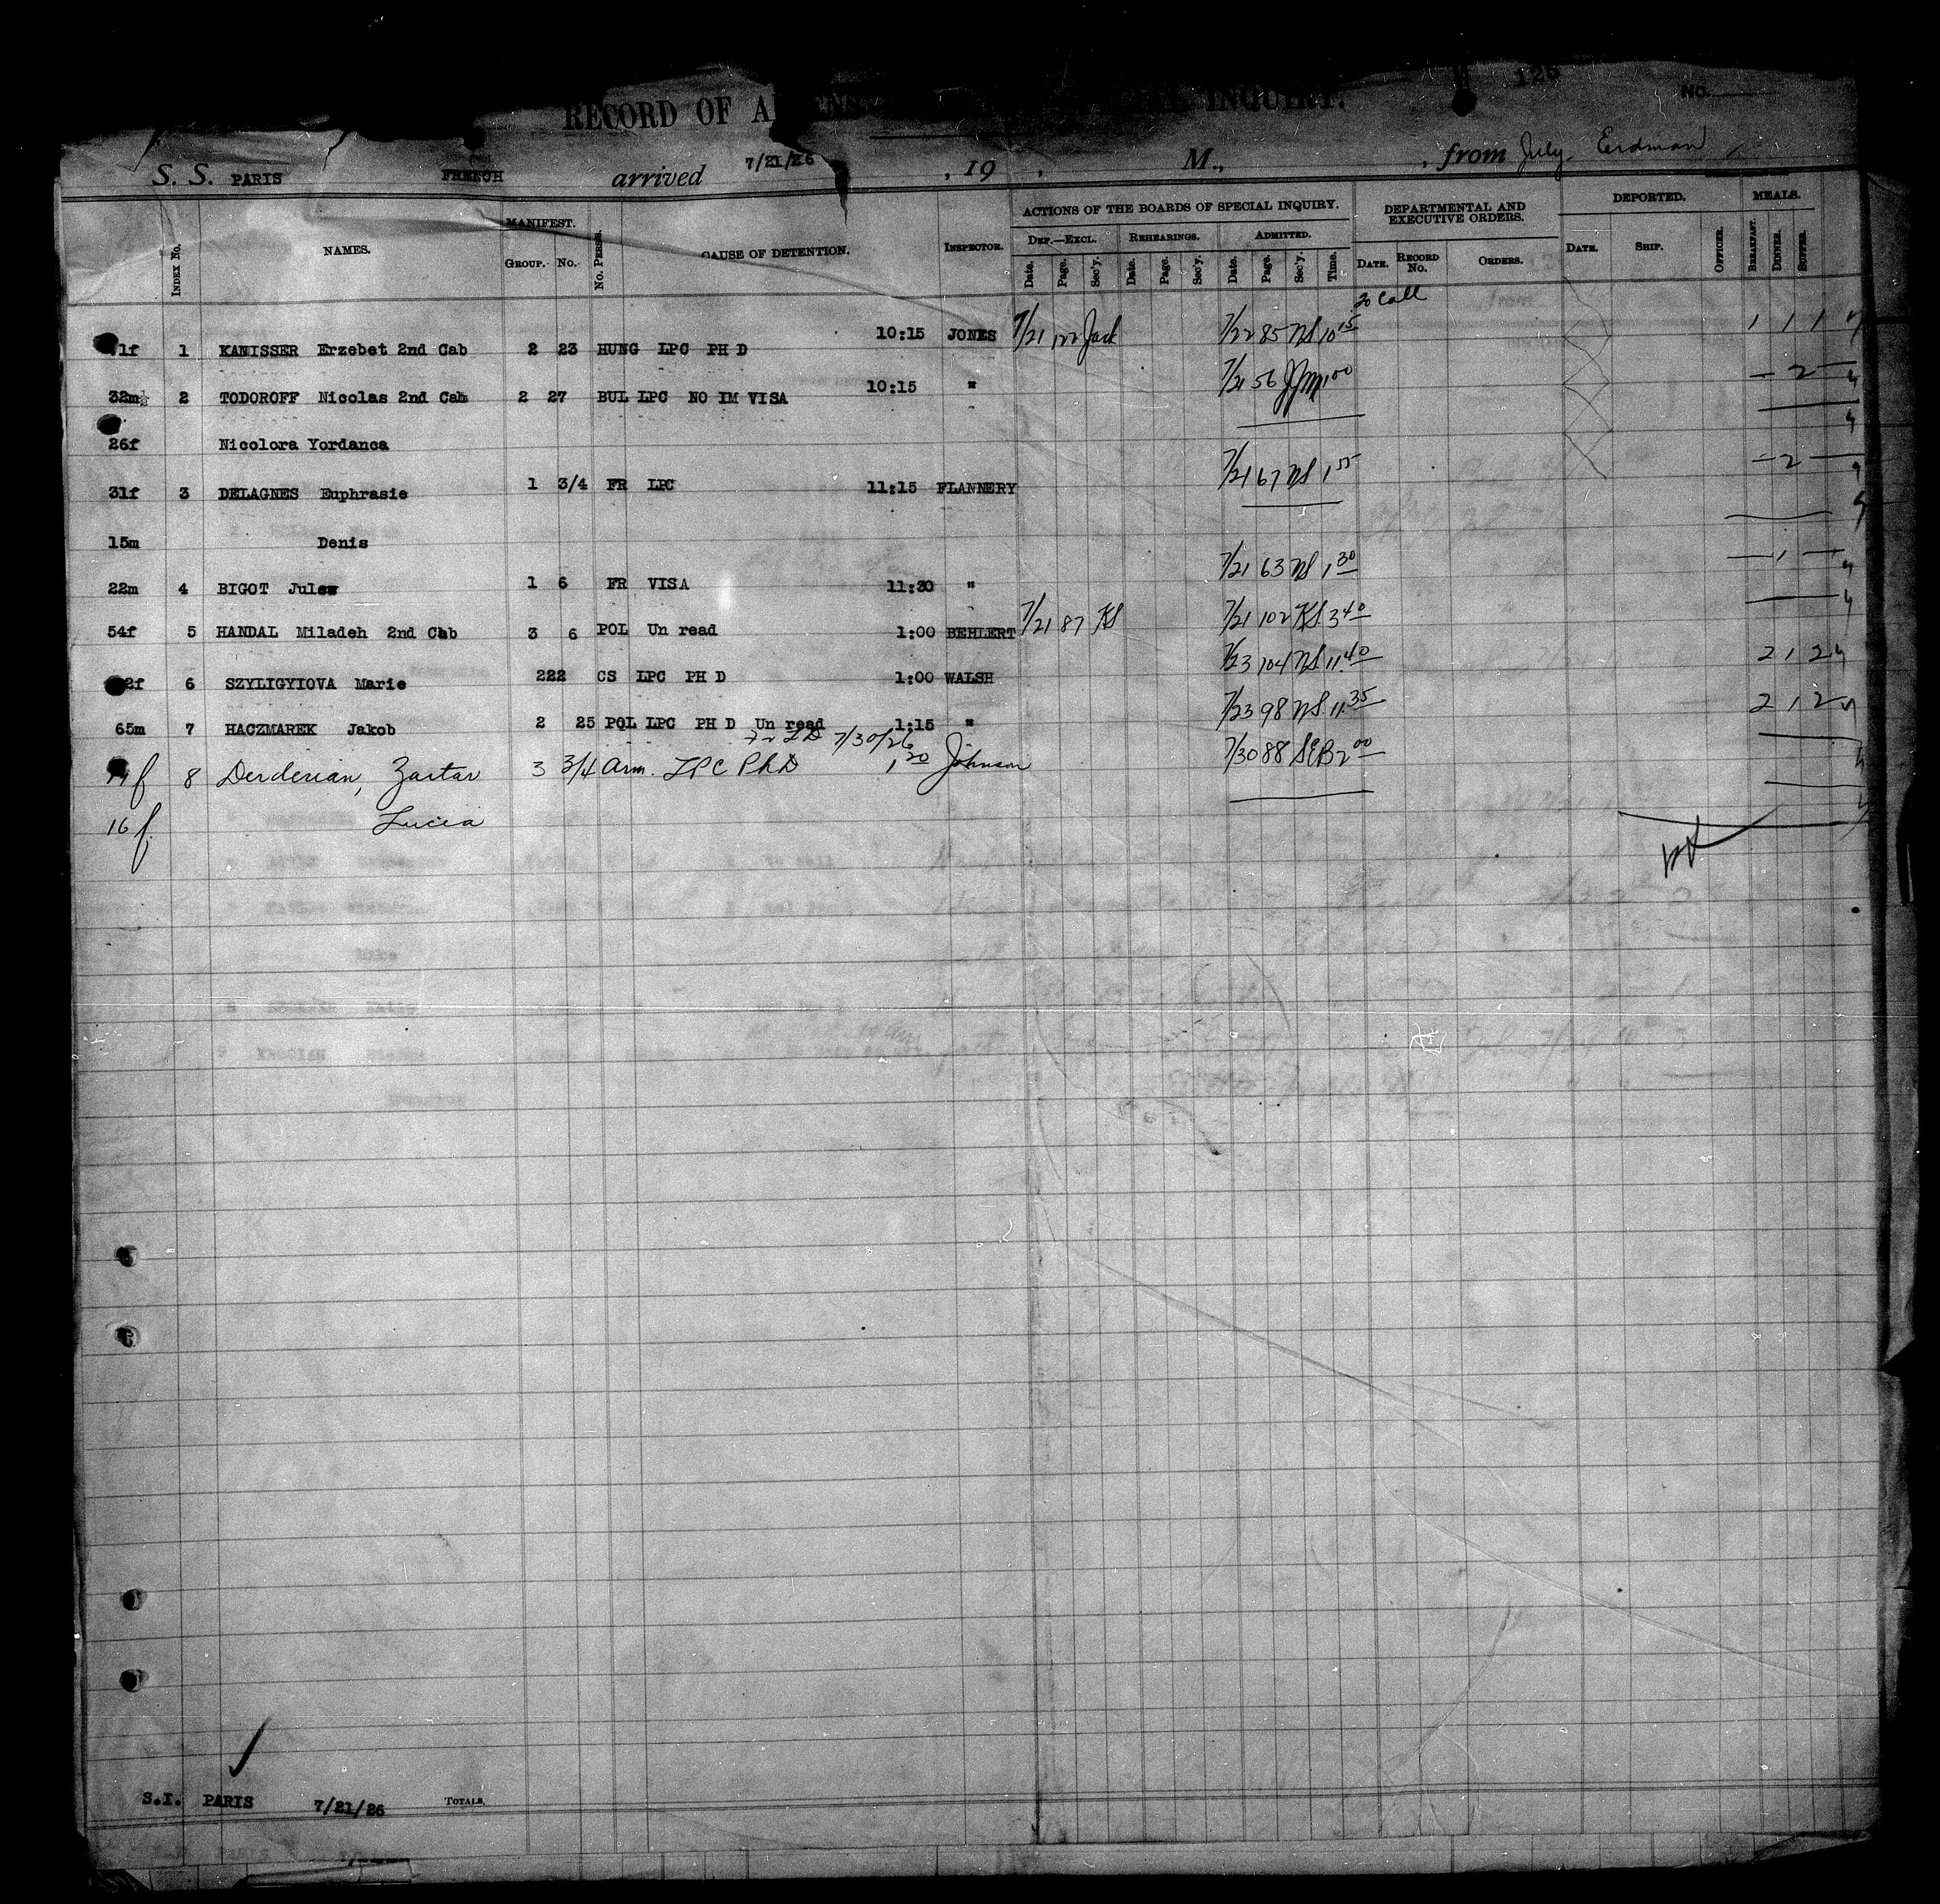 RECORD OF A INQUIRY.
126
No.
S. S. PARIS FRENCH arrived 7/21/26 , 19 , M., , from July Erdman
INDEX No. NAMES. MANIFEST. GROUP. No. No. PERS. CAUSE OF DETENTION. INSPECTOR. ACTIONS OF THE BOARDS OF SPECIAL INQUIRY. DEF.—EXCL. Date. Page. Sec'y. REHEARINGS. Date. Page. Sec'y. ADMITTED. Date. Page. Sec'y. Time. DEPARTMENTAL AND EXECUTIVE ORDERS. DATE. RECORD No. ORDERS. DEPORTED. DATE. SHIP. OFFICER. MEALS. BREAKFAST. DINNER. SUPPER.
1f 1 KANISSER Erzebet 2nd Cab 2 23 HUNG LPC PH D 10:15 JONES 7/21 122 Jack 7/22 85 NS 10 15 to Call 1 1 1
32m 2 TODOROFF Nicolas 2nd Cab 2 27 BUL LPC NO IM VISA 10:15 " 7/21 56 1 00 — 2 —
26f Nicolora Yordanca
31f 3 DELAGNES Euphrasie 1 3/4 FR LPC 11:15 FLANNERY 7/21 67 NS 1 55 — 2 —
15m Denis
22m 4 BIGOT Jules 1 6 FR VISA 11:30 " 7/21 63 NS 1 30 — 1 —
54f 5 HANDAL Miladeh 2nd Cab 3 6 POL Un read 1:00 BEHLERT 7/21 87 KS 7/21 102 KS 3 40
2f 6 SZYLIGYIOVA Marie 222 CS LPC PH D 1:00 WALSH 7/23 104 NS 11 40 2 1 2
65m 7 HACZMAREK Jakob 2 25 POL LPC PH D Un read 1:15 " 7/23 98 NS 11 35 2 1 2
7/30/26
f 8 Derderian, Zartar 3 3/4 Arm. LPC PhD 1 20 Johnson 7/30 88 SEB 2 00
16 f. Lucia
S.I. PARIS 7/21/26 TOTALS,